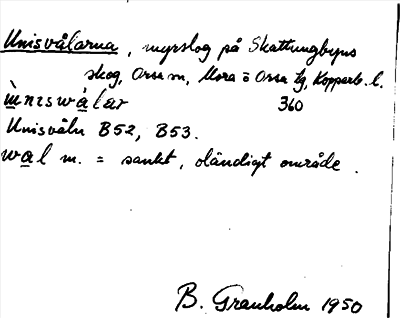 Unisvålarna, myrslog på Skattungbyns
skog, Orsa sn, Mora o Orsa tg, Kopparb. l.
ùnɩswálar 360
Unisvåln B52, B53.
wal m. = sankt, oländigt område.
B. Granholm 1950